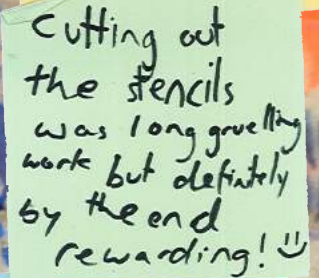 Cutting out
the stencils
was long gruelling
work but defintely
by the end
rewarding!